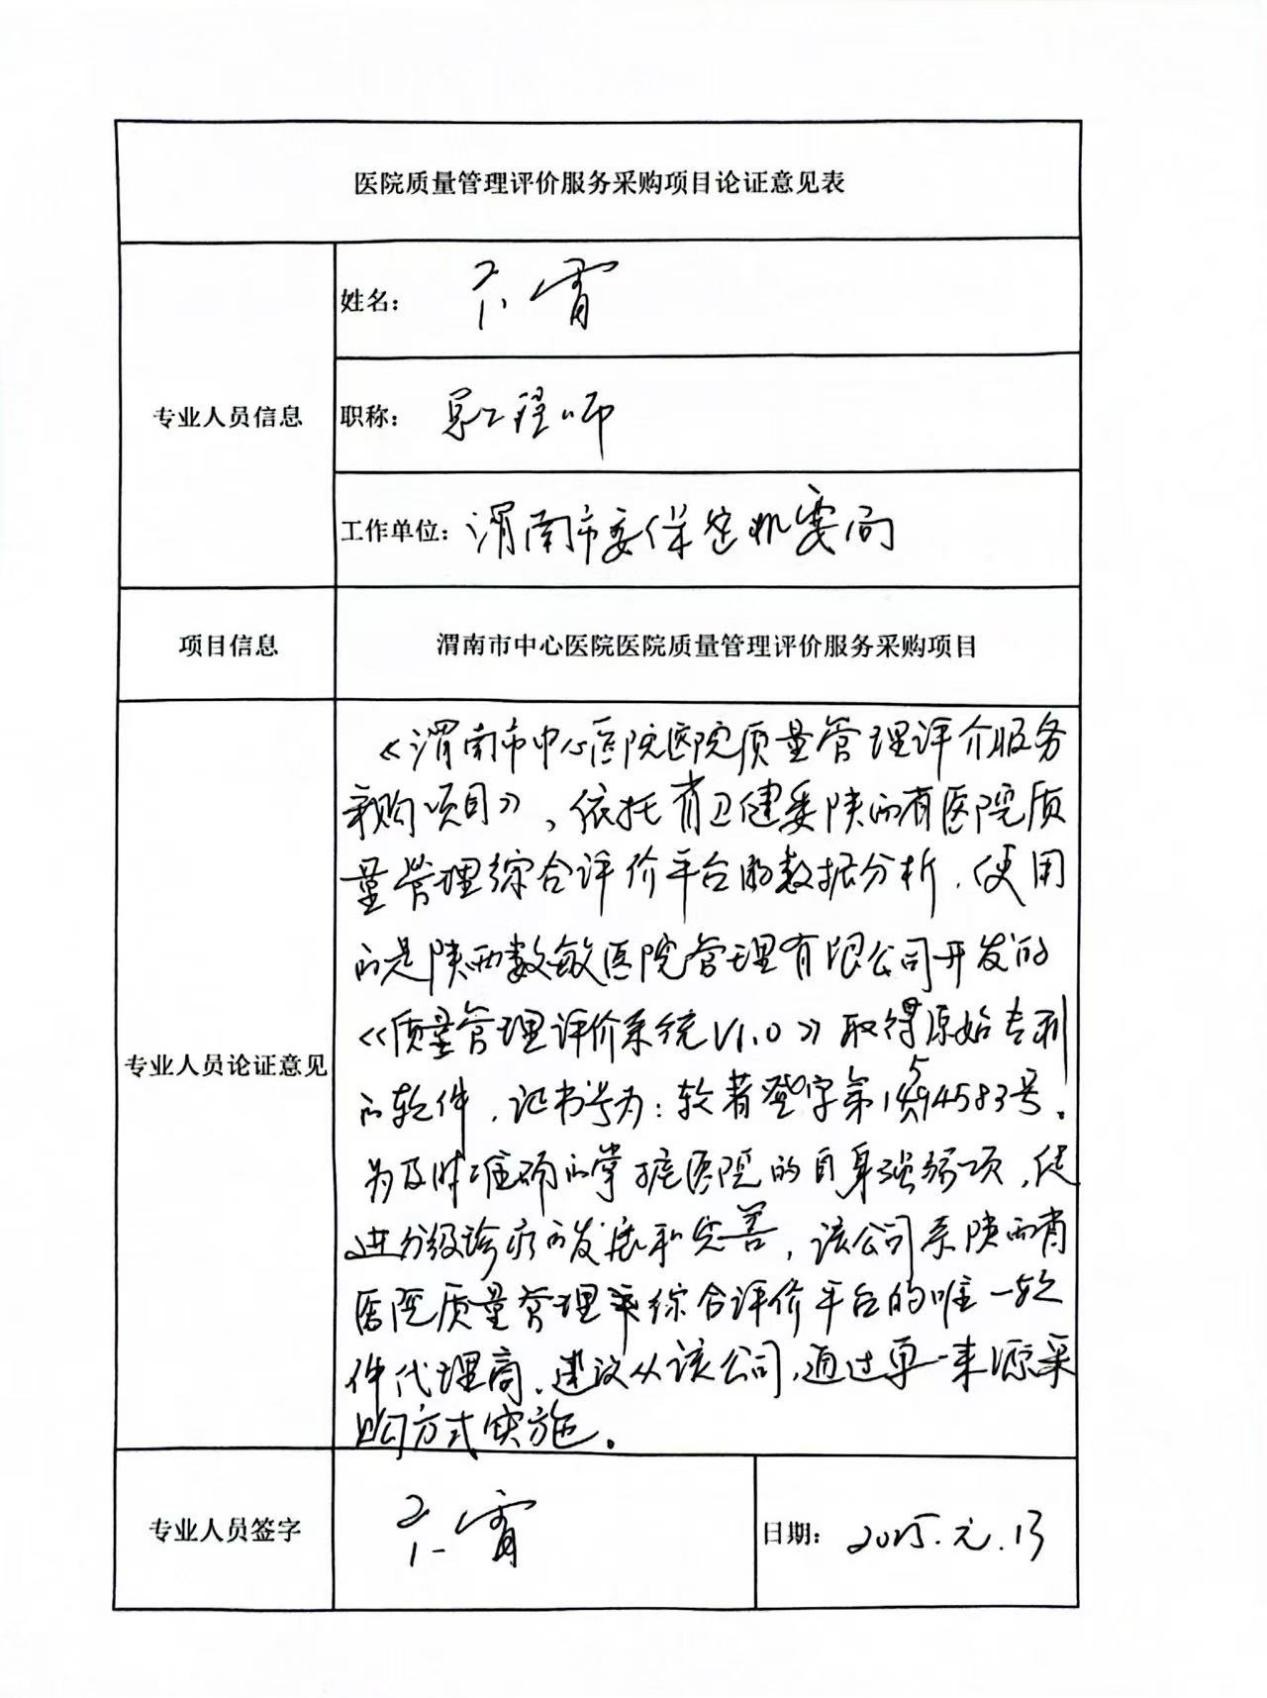 医院质量管理评价服务采购项目论证意见表
专业人员信息
姓名:
职称: 工程师
工作单位: 渭南市委保密机要局
项目信息
渭南市中心医院医院质量管理评价服务采购项目
专业人员论证意见
《渭南市中心医院医院质量管理评介服务
采购项目》,依托省卫健委陕西省医院质
量管理综合评价平台的数据分析,使用
的是陕西数敏医院管理有限公司开发的
《质量管理评价系统V1.0》取得原始专利
的软件,证书号为:软著登字第1594583号。
为及时准确的掌握医院的自身强弱项,促
进分级诊疗的发展和完善,该公司系陕西省
医院质量管理综合评价平台的唯一软
件代理商,建议从该公司,通过单一来源采
购方式实施。
专业人员签字
日期: 2025.元.13